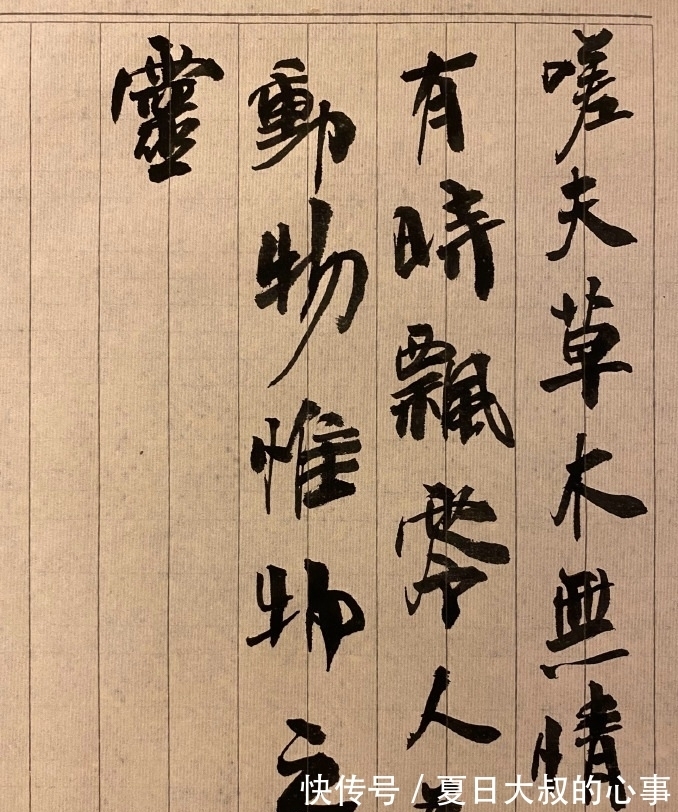 嗟夫草木無情
有時飄零人
動物惟物之
靈
快传号 / 夏日大叔的心事